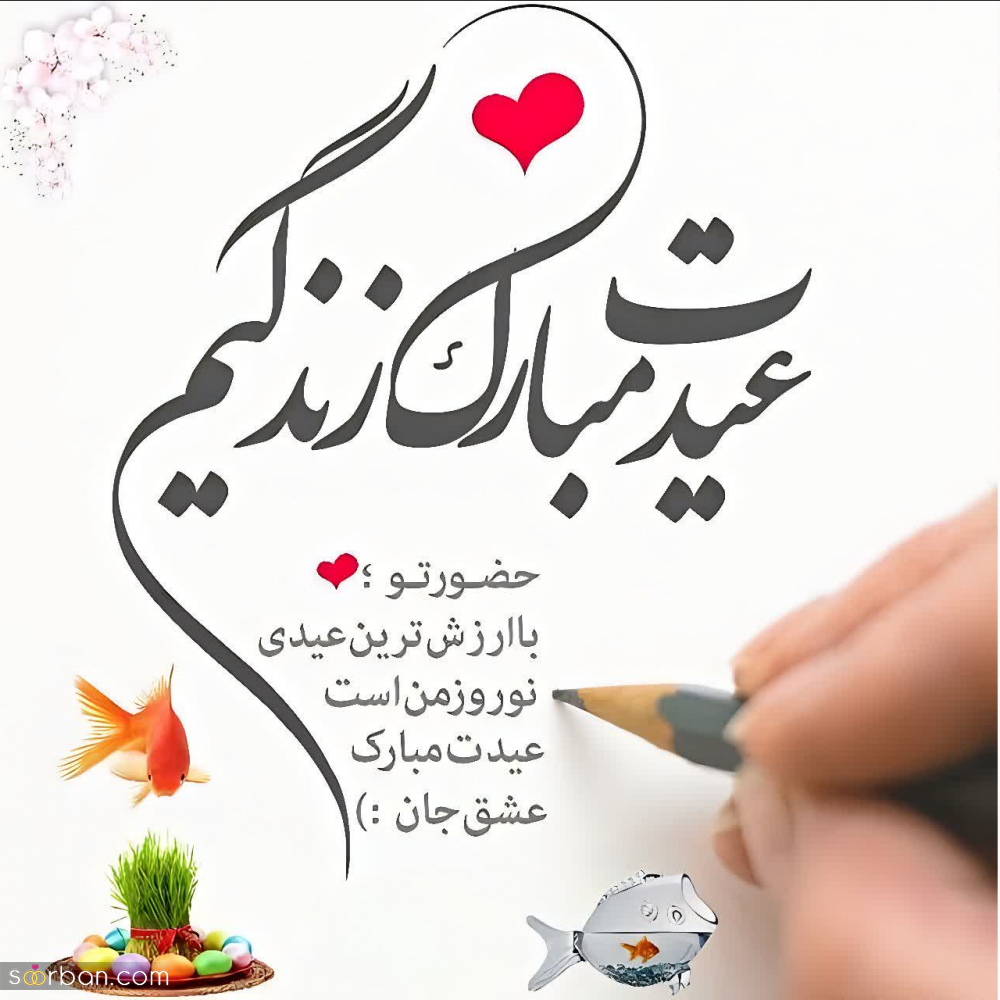 عیدت مبارک زندگیم
حضورتو ؛
باارزش‌ترین‌عیدی
نوروزمن‌است
عیدت‌مبارک
عشق‌جان :)
soorban.com